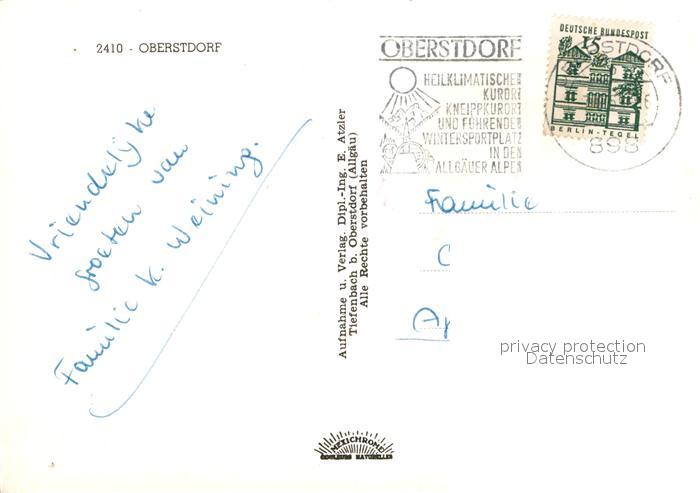 2410 - OBERSTDORF
Vriendelijke
groeten van
Familie K. Weining.
Aufnahme u. Verlag. Dipl.-Ing. E. Atzler
Tiefenbach b. Oberstdorf (Allgäu)
Alle Rechte vorbehalten
OBERSTDORF
HEILKLIMATISCHER
KURORT
KNEIPPKURORT
UND FÜHRENDER
WINTERSPORTPLATZ
IN DEN
ALLGÄUER ALPEN
DEUTSCHE BUNDESPOST
15
BERLIN-TEGEL
OBERSTDORF
898
Familie
privacy protection
Datenschutz
MEXICHROME
COULEURS NATURELLES